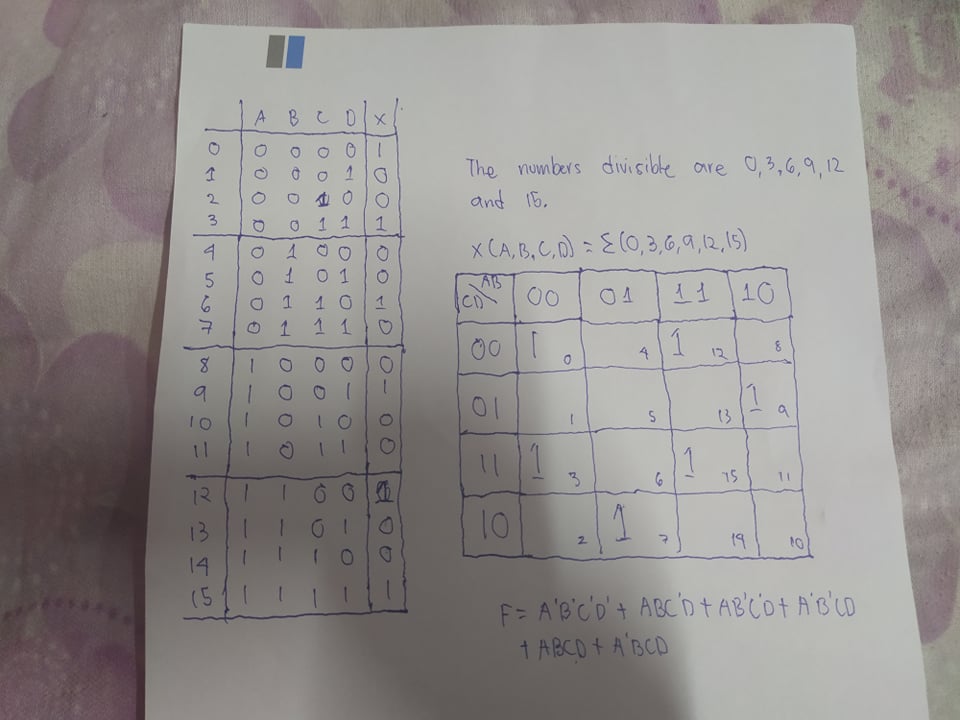 A B C D X
0 0 0 0 0 1
1 0 0 0 1 0
2 0 0 1 0 0
3 0 0 1 1 1
4 0 1 0 0 0
5 0 1 0 1 0
6 0 1 1 0 1
7 0 1 1 1 0
8 1 0 0 0 0
9 1 0 0 1 1
10 1 0 1 0 0
11 1 0 1 1 0
12 1 1 0 0 1
13 1 1 0 1 0
14 1 1 1 0 0
15 1 1 1 1 1
The numbers divisible are 0,3,6,9,12
and 15.
X(A,B,C,D) = Σ(0,3,6,9,12,15)
AB
CD 00 01 11 10
00 1 0 4 1 12 8
01 1 5 13 1 9
11 1 3 6 1 15 11
10 2 1 7 14 10
F = A'B'C'D' + ABC'D + AB'C'D + A'B'CD
+ ABCD + A'BCD